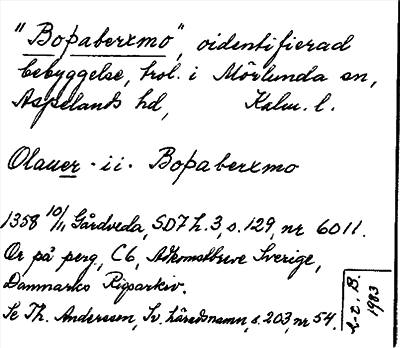 "Boþaberxmo", oidentifierad
bebyggelse, trol. i Mörlunda sn,
Aspelands hd, Kalm. l.
Olauer · i i · Boþaberxmo
1358 10/11 Gårdveda, SD7 h. 3, s. 129, nr 6011.
Or på perg, C6, Adkomstbreve Sverige,
Danmarks Rigsarkiv.
Se Th. Andersson, Sv. häradsnamn, s. 203, nr 54.
B.
1983